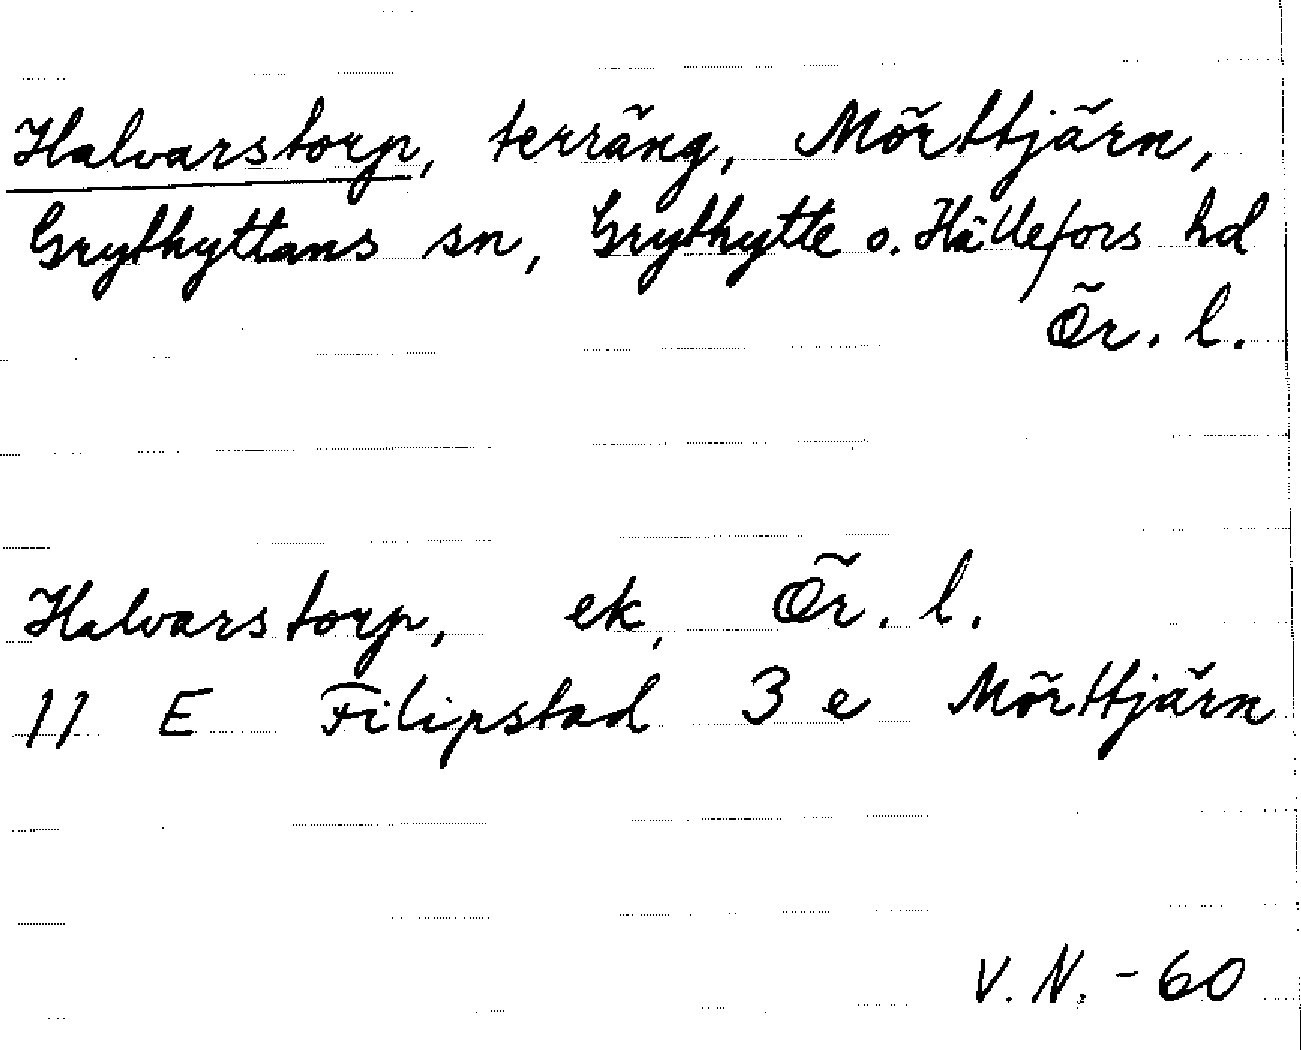 Halvarstorp, terräng, Mörttjärn,
Grythyttans sn, Grythytte o. Hällefors hd
Ör. l.
Halvarstorp, ek, Ör. l.
11 E Filipstad 3 e Mörttjärn
V. N. - 60